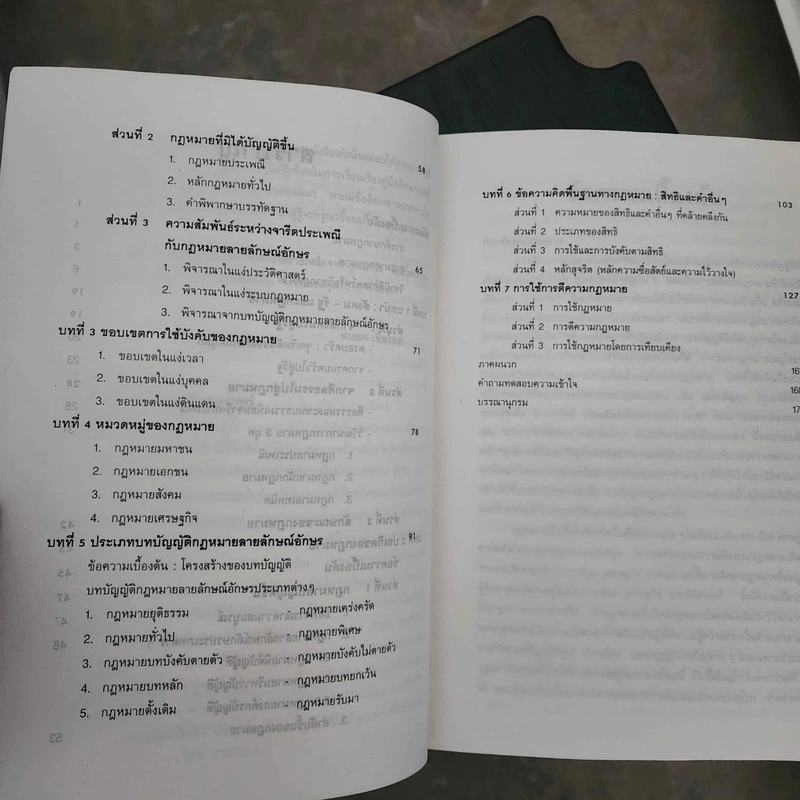 ส่วนที่ 2 กฎหมายที่มิได้บัญญัติขึ้น 58
1. กฎหมายประเพณี
2. หลักกฎหมายทั่วไป
3. คำพิพากษาบรรทัดฐาน
ส่วนที่ 3 ความสัมพันธ์ระหว่างจารีตประเพณี
กับกฎหมายลายลักษณ์อักษร 65
1. พิจารณาในแง่ประวัติศาสตร์
2. พิจารณาในแง่ระบบกฎหมาย
3. พิจารณาจากบทบัญญัติกฎหมายลายลักษณ์อักษร
บทที่ 3 ขอบเขตการใช้บังคับของกฎหมาย 71
1. ขอบเขตในแง่เวลา
2. ขอบเขตในแง่บุคคล
3. ขอบเขตในแง่ดินแดน
บทที่ 4 หมวดหมู่ของกฎหมาย 78
1. กฎหมายมหาชน
2. กฎหมายเอกชน
3. กฎหมายสังคม
4. กฎหมายเศรษฐกิจ
บทที่ 5 ประเภทบทบัญญัติกฎหมายลายลักษณ์อักษร 91
ข้อความเบื้องต้น : โครงสร้างของบทบัญญัติ
บทบัญญัติกฎหมายลายลักษณ์อักษรประเภทต่างๆ
1. กฎหมายยุติธรรม - กฎหมายเคร่งครัด
2. กฎหมายทั่วไป - กฎหมายพิเศษ
3. กฎหมายบทบังคับตายตัว - กฎหมายบังคับไม่ตายตัว
4. กฎหมายบทหลัก - กฎหมายบทยกเว้น
5. กฎหมายดั้งเดิม - กฎหมายรับมา
บทที่ 6 ข้อความคิดพื้นฐานทางกฎหมาย : สิทธิและคำอื่นๆ 103
ส่วนที่ 1 ความหมายของสิทธิและคำอื่นๆ ที่คล้ายคลึงกัน
ส่วนที่ 2 ประเภทของสิทธิ
ส่วนที่ 3 การใช้และการบังคับตามสิทธิ
ส่วนที่ 4 หลักสุจริต (หลักความซื่อสัตย์และความไว้วางใจ)
บทที่ 7 การใช้การตีความกฎหมาย 127
ส่วนที่ 1 การใช้กฎหมาย
ส่วนที่ 2 การตีความกฎหมาย
ส่วนที่ 3 การใช้กฎหมายโดยการเทียบเคียง
ภาคผนวก
คำถามทดสอบความเข้าใจ
บรรณานุกรม